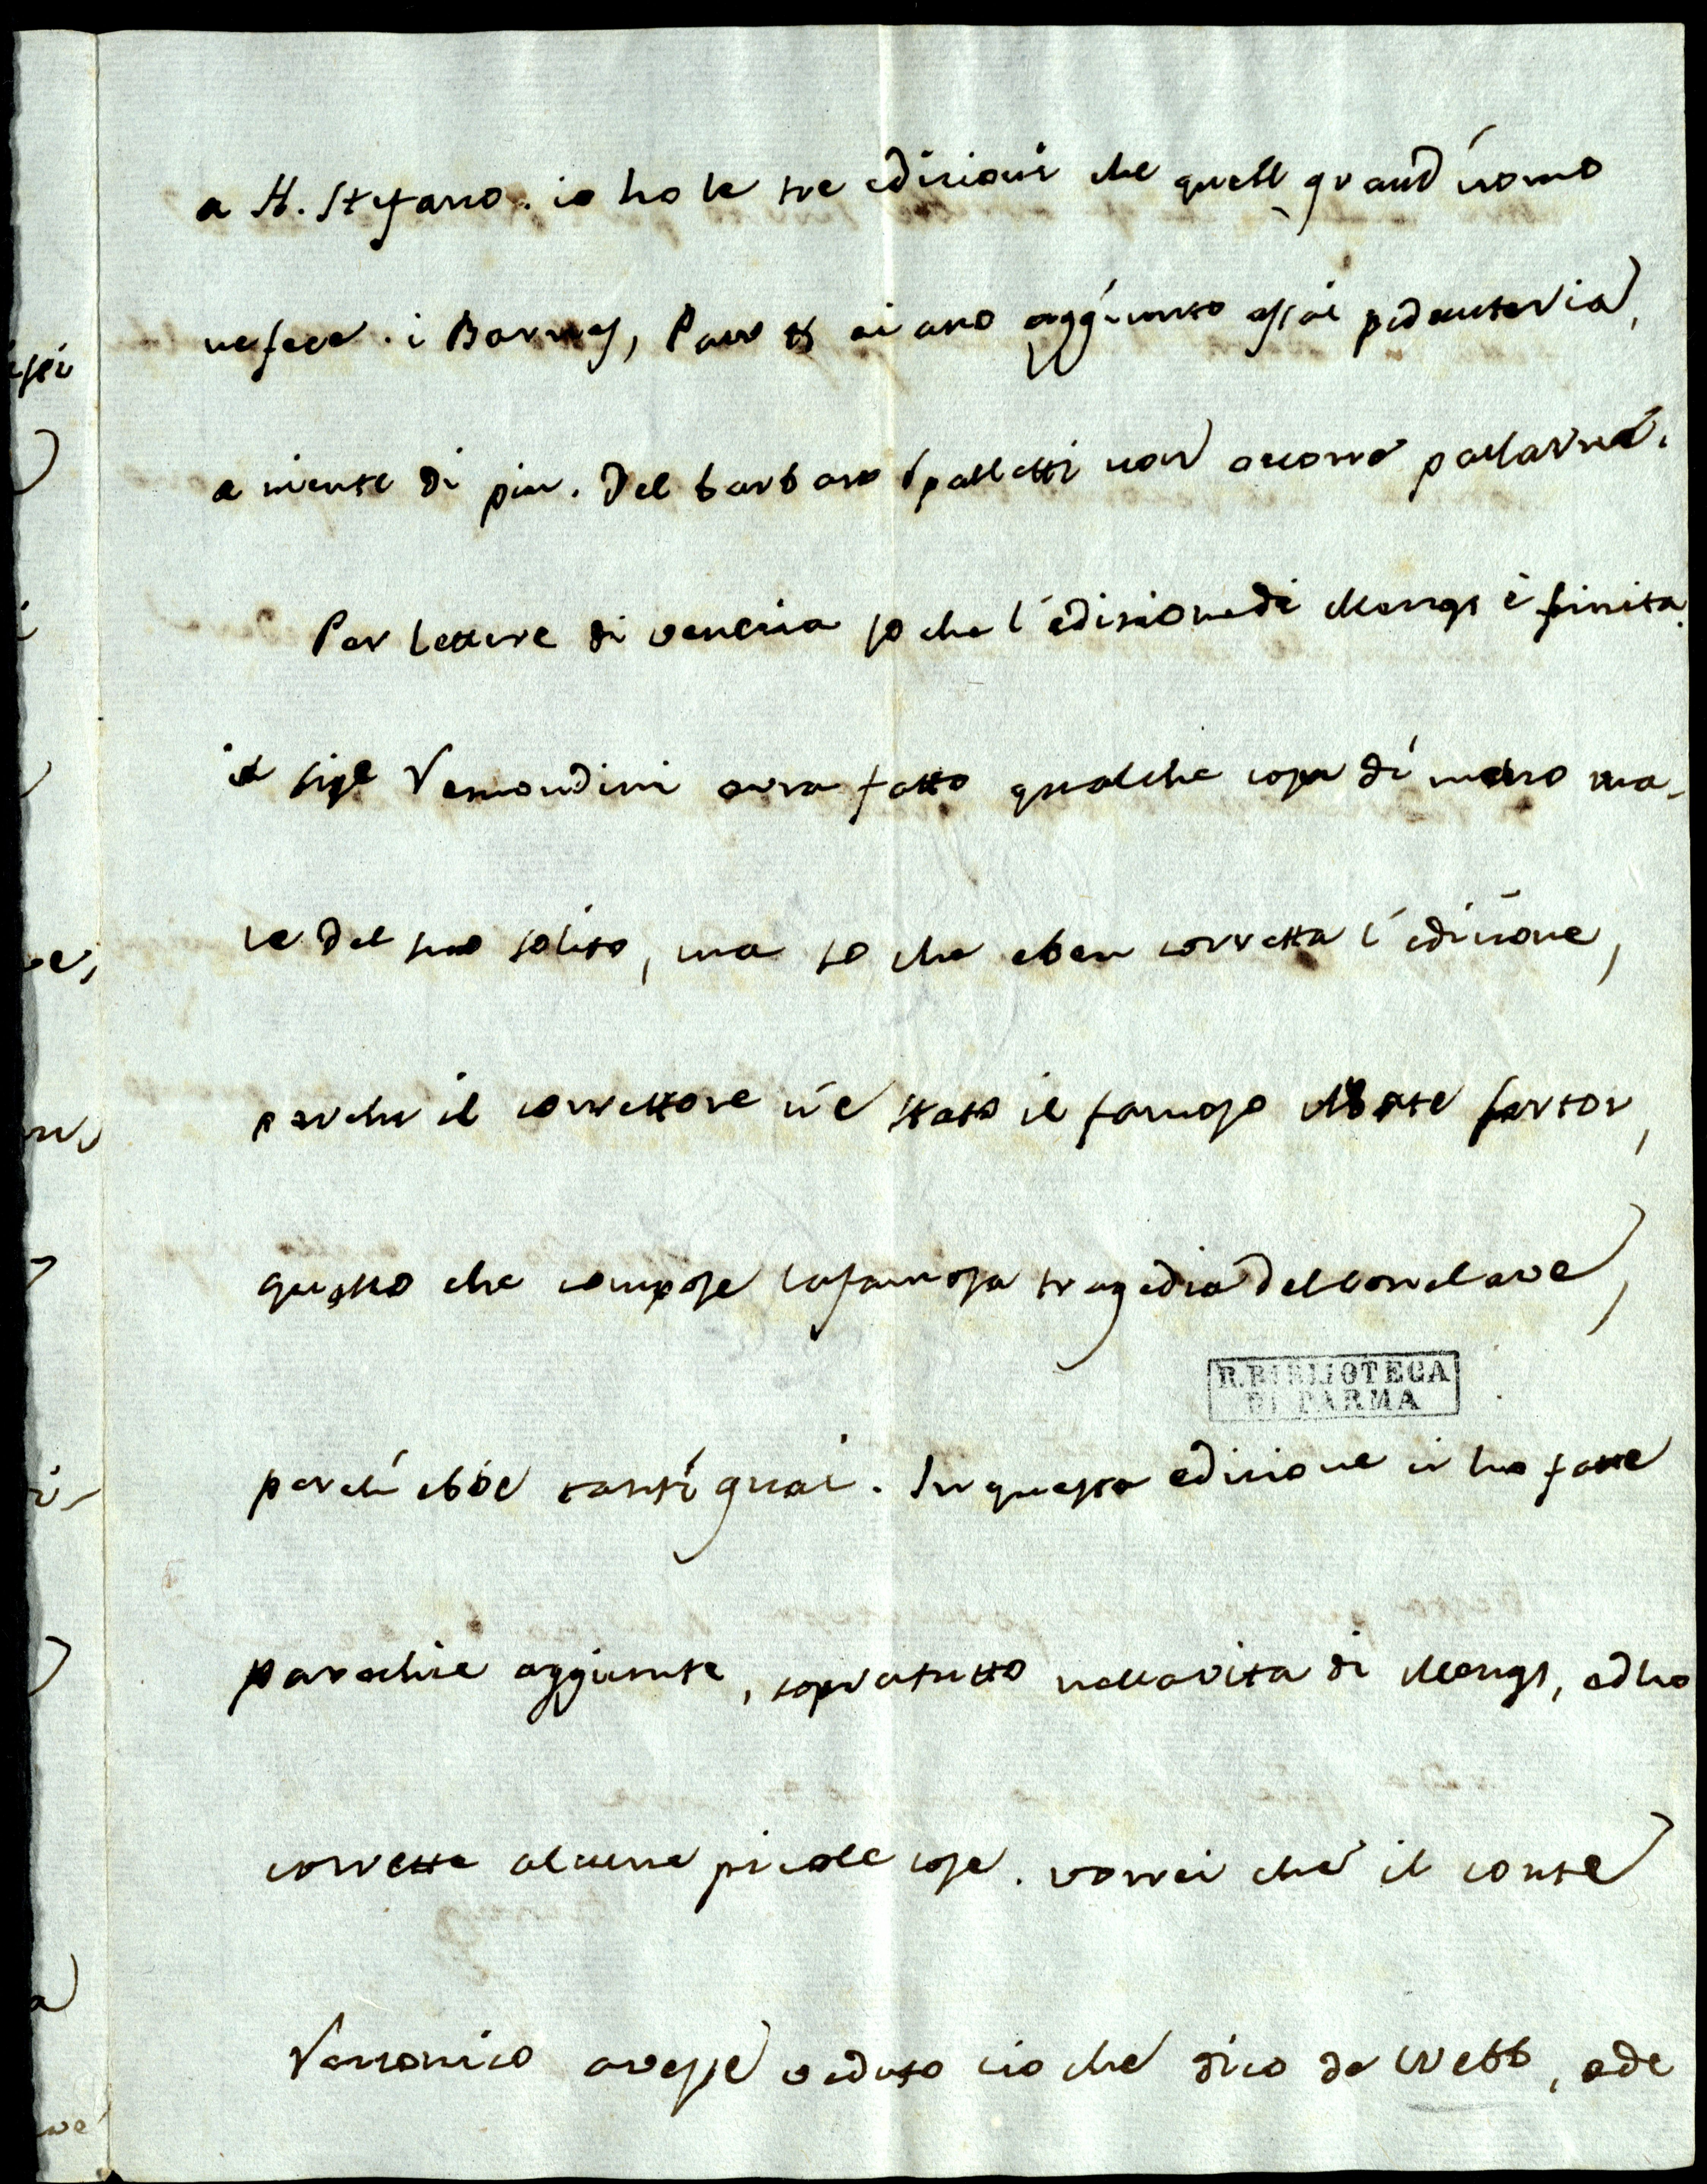 a H. Stefano. io ho le tre edizioni che quell grand'uomo
ne fece. i Barnes, Paw & ci ano aggiunto assai pedanteria,
a niente di piu. Del barbaro Spalletti non occorre parlarne.
Per lettere di venezia so che l'edizione di Mengs è finita.
il sigr Remondini avra fatto qualche cosa di meno ma-
le del suo solito, ma so che e ben corretta l'edizione,
perche il correttore n'e stato il famoso Abate sertor,
questo che compose la famosa tragedia del conclave,
perchi ebbe tanti guai. In questa edizione ci ho fatte
parechie aggiunte, sopratutto nella vita di Mengs, ed ho
corrette alcune picole cose. vorrei che il conte
Rezzonico avesse veduto cio che dico de Webb, e de
R. BIBLIOTECA
DI PARMA